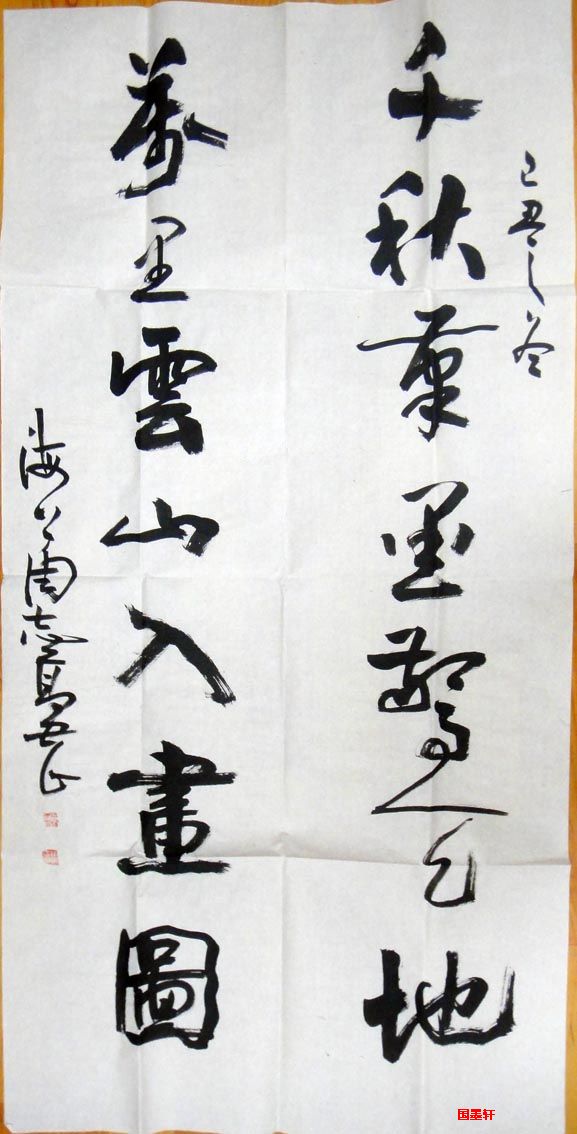 己丑之冬
千秋筆墨驚天地
萬里雲山入畫圖
海上周志高
国墨轩